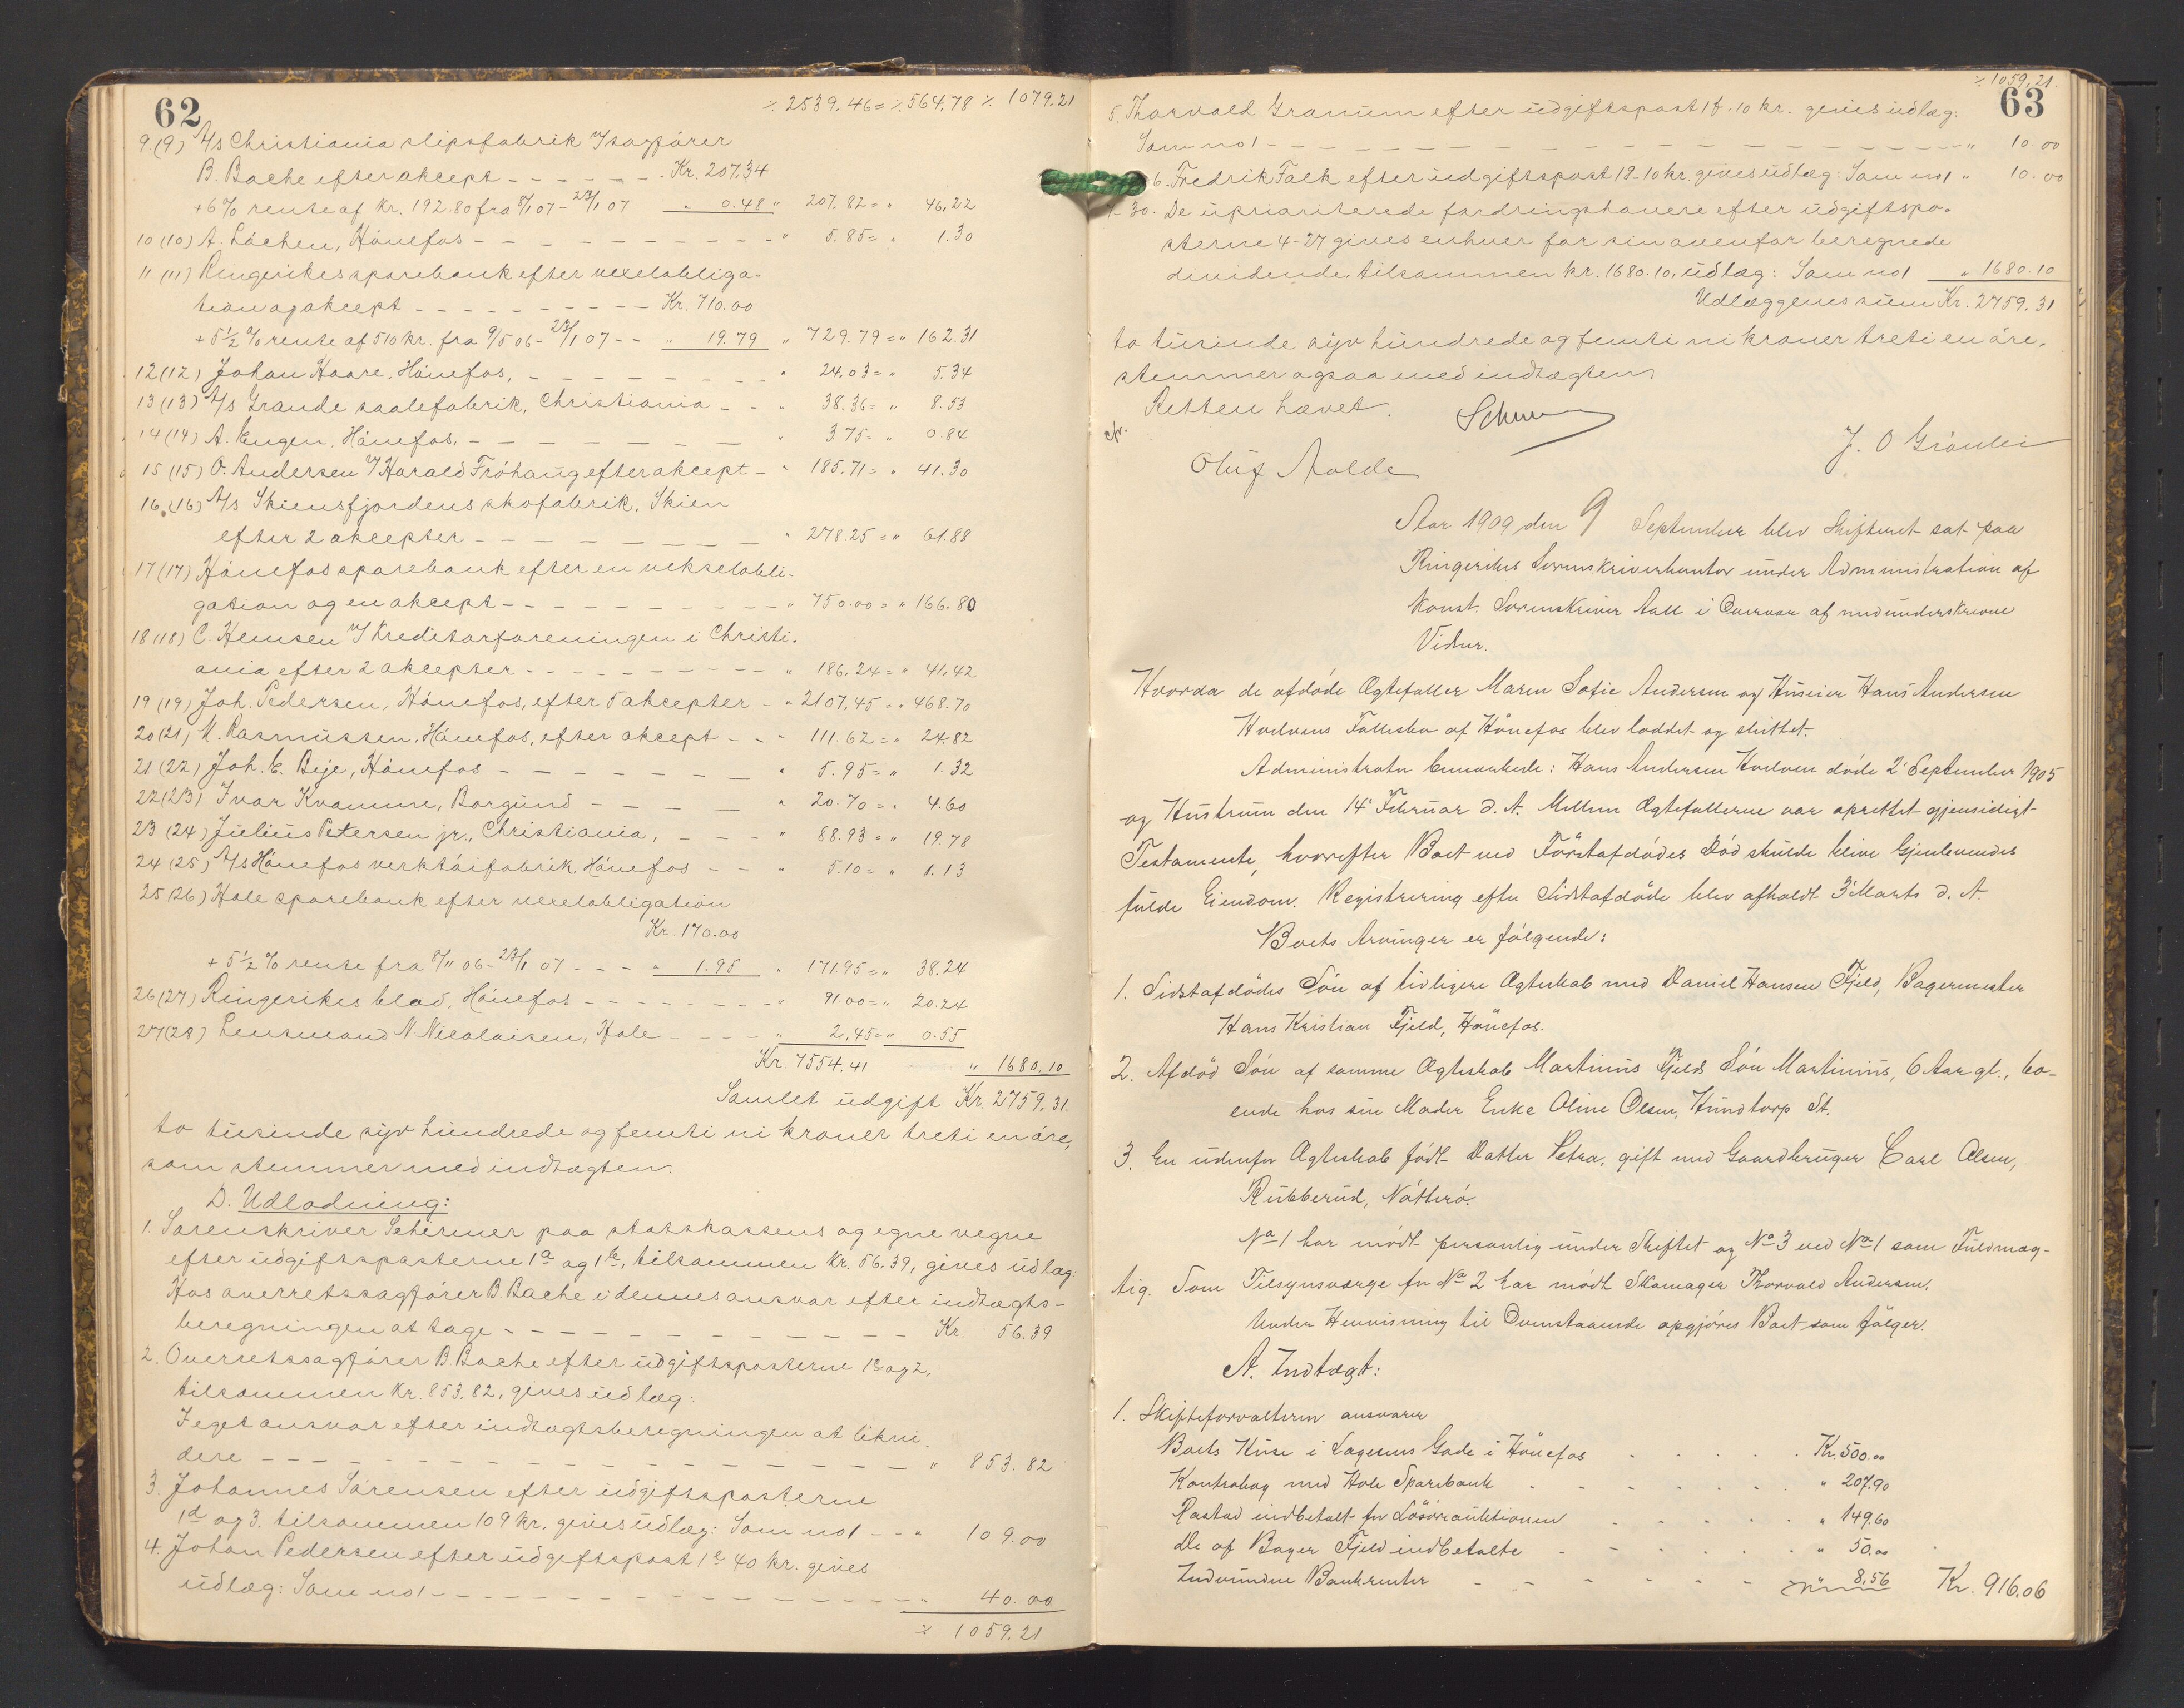 62
⁒ 2539.46 = ⁒ 564.78 ⁒ 1079.21
9.(9) A/s Christiania slipsfabrik v/ sagfører
B. Bache efter akcept - - - - - - Kr. 207.34
+ 6 % rente af kr. 192.80 fra 8/1 07 - 23/1 07 " 0.48 " 207.82 = " 46.22
10 (10) A. Løchen, Hønefos - - - - - - - - " 5.85 = " 1.30
11 (11) Ringerikes sparebank efter vexelobliga-
tion og akcept - - - - - - - - - Kr. 710.00
+ 5 ½ % rente af 510 kr. fra 9/5 06 - 23/1 07 - - " 19.79 " 729.79 = " 162.31
12 (12) Johan Haare, Hønefos, - - - - - - - " 24.03 = " 5.34
13 (13) A/s Grande saalefabrik, Christiania - - " 38.36 = " 8.53
14 (14) A. Engen, Hønefos, - - - - - - - " 3.75 = " 0.84
15 (15) O. Andersen v/ Harald Frøhaug efter akcept - " 185.71 = " 41.30
16. (16) A/s Skiensfjordens skofabrik, Skien
efter 2 akcepter - - - - - - - - " 278.25 = " 61.88
17 (17) Hønefos sparebank efter en vekselobli-
gation og en akcept - - - - - - - - - " 750.00 = " 166.80
18 (18) C. Hemsen v/ Kreditorforeningen i Christi-
ania efter 2 akcepter - - - - - - - - " 186.24 = " 41.42
19 (19) Joh. Pedersen, Hønefos, efter 5 akcepter - " 2107.45 = " 468.70
20 (21) M. Rasmussen, Hønefos, efter akcept - - - " 111.62 = " 24.82
21 (22) Joh. E. Beje, Hønefos - - - - - - - " 5.95 = " 1.32
22 (23) Ivar Kvamme, Borgund - - - - - " 20.70 = " 4.60
23 (24) Julius Petersen jr., Christiania, - - - " 88.93 = " 19.78
24 (25) A/s Hønefos verktøifabrik, Hønefos - - " 5.10 = " 1.13
25 (26) Hole sparebank efter vexelobligation
Kr. 170.00
+ 5 ½ % rente fra 8/11 06 - 23/1 07 - - - " 1.95 " 171.95 = " 38.24
26 (27) Ringerikes blad, Hønefos - - - - - - - - " 91.00 = " 20.24
27 (28) Lensmand N. Nicolaisen, Hole - - - - " 2.45 = " 0.55
Kr. 7554.41 " 1680.10
Samlet udgift Kr. 2759.31.
to tusinde syv hundrede og femti ni kroner treti en øre,
som stemmer med indtægten.
D. Udlodning:
1. Sorenskriver Schermer paa statskassens og egne vegne
efter udgiftsposterne 1a og 1b, tilsammen kr. 56.39, gives udlæg:
Hos overretssagfører B Bache i dennes ansvar efter indtægts-
beregningen at tage - - - - - - - - - - - - Kr. 56.39
2. Overretssagfører B. Bache efter udgiftsposterne 1c og 2,
tilsammen Kr. 853.82, gives udlæg:
I eget ansvar efter indtægtsberegningen at likvi-
dere - - - - - - - - - - - - - - - - - - " 853.82
3. Johannes Sørensen efter udgiftsposterne
1d og 3. tilsammen 109 kr. gives udlæg: Som no 1 - - " 109.00
4. Johan Pedersen efter udgiftspost 1e 40 kr. gives
udlæg: Som no 1 - - - - - - - - - - - - - - - " 40.00
⁒ 1059.21
⁒ 1059.21.
63
5. Thorvald Granum efter udgiftspost 1f. 10 kr. gives udlæg:
Som no 1 - - - - - - - - - - - - - - - - - " 10.00
6. Fredrik Falk efter udgiftspost 18 - 10 kr. gives udlæg: Som no 1 " 10.00
- 30. De uprioriterede fordringshavere efter udgiftspo-
sterne 4-27 gives enhver for sin ovenfor beregnede
dividende tilsammen kr. 1680.10, udlæg: Som no 1 " 1680.10
Udlæggenes sum Kr. 2759.31
to tusinde syv hundrede og femti ni kroner treti en øre,
stemmer ogsaa med indtægten.
Retten hævet.
J. O Grønlie
Oluf Molde
Aar 1909 den 9 September blev Skifteret sat paa
Ringerikes Sorenskriverkontor under Administration af
konst. Sorenskriver Aall i Overvær af medunderskrevne
Vidner.
Hvorda de afdøde Ægtefæller Maren Sofie Andersen og Huseier Hans Andersen
Hvelvens Fællesbo af Hønefos blev loddet og sluttet.
Administrator bemærkede: Hans Andersen Hvelven døde 2' September 1905
og Hustruen den 14' Februar d. A. Mellem Ægtefællerne var oprettet gjensidigt
Testamente, hvorefter Boet ved Førstafdødes Død skulde blive Gjenlevendes
fulde Eiendom. Registrering efter Sidstafdøde blev afholdt 3' Marts d. A.
Boets Arvinger er følgende:
1. Sidstafdødes Søn af tidligere Ægteskab med Daniel Hansen Fjeld, Bagermester
Hans Kristian Fjeld, Hønefos.
2. Afdød Søn af samme Ægteskab Martinius Fjelds Søn Martinius, 6 Aar gl., bo-
ende hos sin Moder Enke Oline Olsen, Hundtorp St.
3. En udenfor Ægteskab født Datter Petra, gift med Gaardbruger Carl Olsen,
Rubberud, Nøtterø.
No 1 har mødt personlig under Skiftet og No 3 ved No 1 som Fuldmæg-
tig. Som Tilsynsværge for No 2 har mødt Skomager Thorvald Andersen.
Under Henvisning til Ovenstaaende opgjøres Boet som følger.
A. Indtægt:
1. Skifteforvalteren ansvarer
Boets Huse i Lagesens Gade i Hønefos - - - - - Kr. 500.00
Kontrabog med Hole Sparebank - - - - - - - " 207.90
Rastad indbetalt for Løsøreauktionen - - - - - " 149.60
De af Bager Fjeld indbetalte - - - - - - " 50.00
Indvundne Bankrenter - - - - - - " 8.56 Kr. 916.06